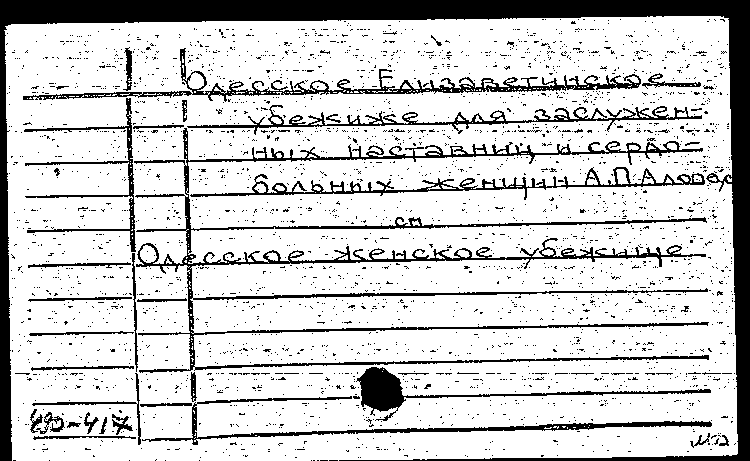 Одесское Елизаветинское
убежиже для заслужен-
ных наставниц и сердо-
больных женщин А.П.
см
Одесское женское убежище
490-417